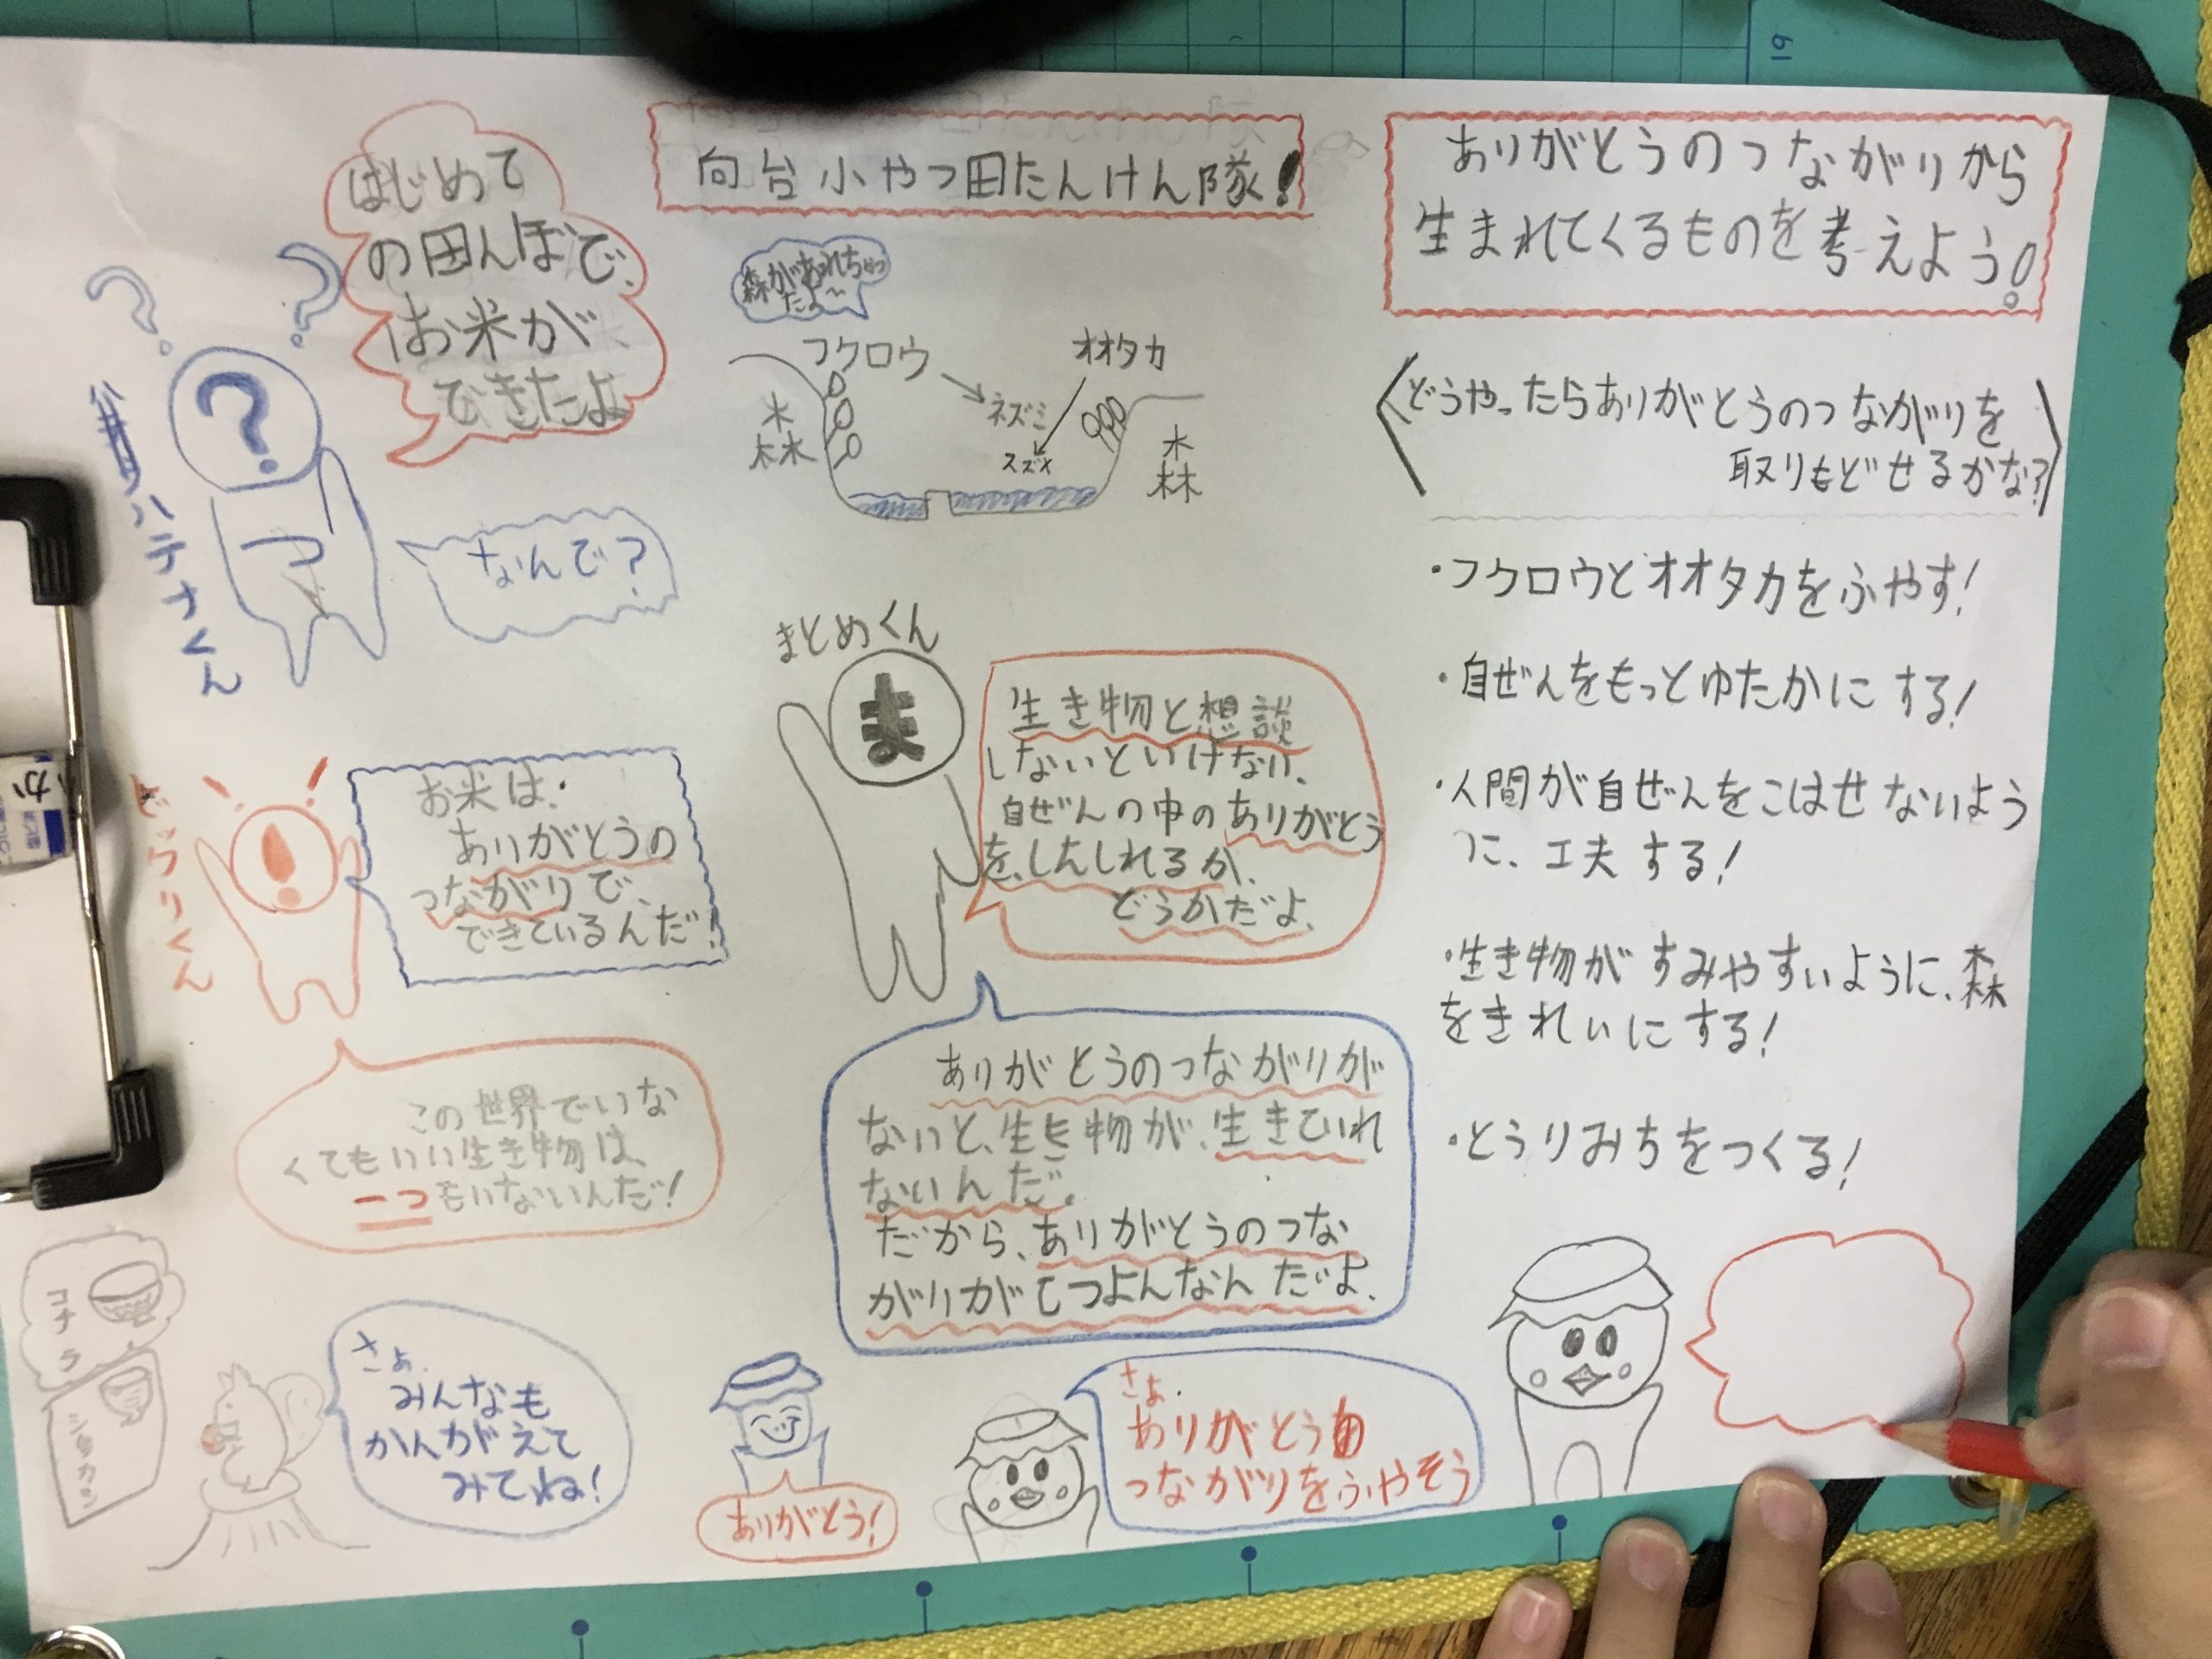 向台小やつ田たんけん隊!
はじめて
の田んぼで、
お米が
できたよ
ハテナくん
?
?
?
つ
なんで?
ビックリくん
お米は、
ありがとうの
つながりで、
できているんだ!
この世界でいな
くてもいい生き物は、
一つもいないんだ!
コナラ
シラカシ
さぁ、
みんなも
かんがえて
みてね!
森があれちゃっ
たよ〜
フクロウ
オオタカ
ネズミ
スズメ
森
森
まとめくん
ま
生き物と想談
しないといけない、
自ぜんの中のありがとう
を、しんしれるか、
どうかだよ、
ありがとうのつながりが
ないと、生き物が、生きていれ
ないんだ。
だから、ありがとうのつな
がりがてつよんなんだよ、
ありがとう!
さぁ、
ありがとうの
つながりをふやそう
ありがとうのつながりから
生まれてくるものを考えよう!
どうやったらありがとうのつながりを
取りもどせるかな?
・フクロウとオオタカをふやす!
・自ぜんをもっとゆたかにする!
・人間が自ぜんをこはせないよう
に、工夫する!
・生き物がすみやすいように、森
をきれいにする!
・とうりみちをつくる!
19